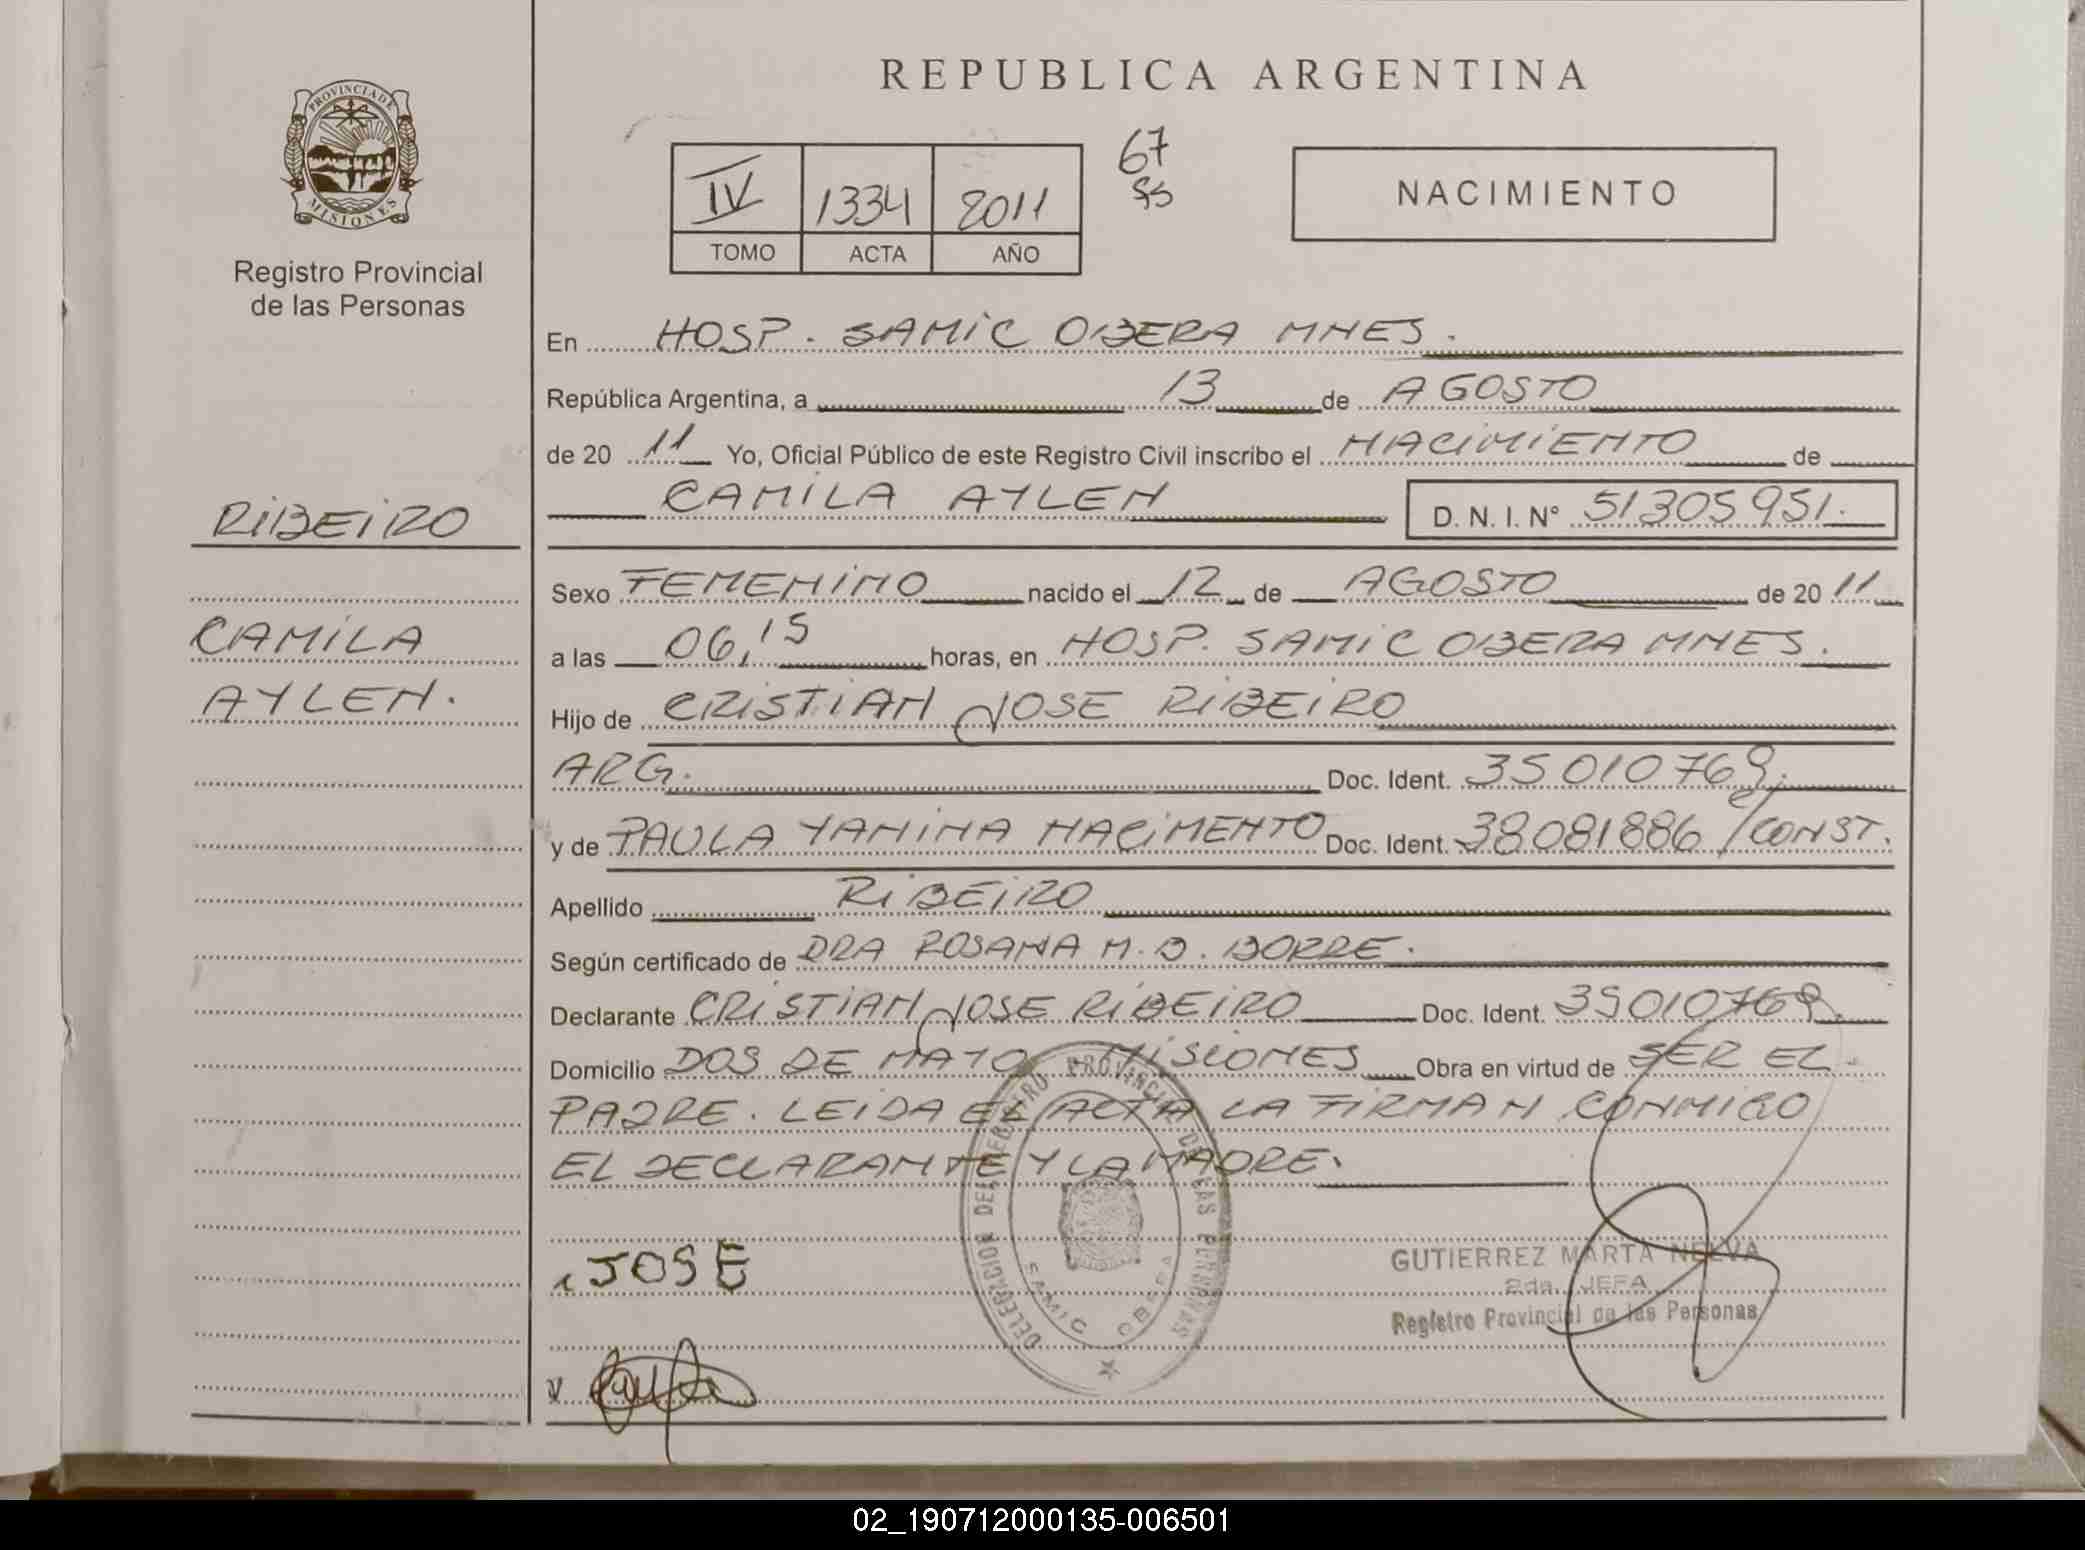 REPUBLICA ARGENTINA
PROVINCIA DE
MISIONES
Registro Provincial
de las Personas
67
IV 1334 2011
TOMO ACTA AÑO
NACIMIENTO
En HOSP. SAMIC OBERA MNES.
República Argentina, a 13 de AGOSTO
de 20 11 Yo, Oficial Público de este Registro Civil inscribo el NACIMIENTO de
CAMILA AYLEN D. N. I. N° 51305951.
RIBEIRO
CAMILA
AYLEN.
Sexo FEMENINO nacido el 12 de AGOSTO de 20 11
a las 06,15 horas, en HOSP. SAMIC OBERA MNES.
Hijo de CRISTIAN JOSE RIBEIRO
ARG. Doc. Ident. 35010769.
y de PAULA YANINA NACIMENTO Doc. Ident. 38081886 /CONST.
Apellido RIBEIRO
Según certificado de DRA ROSANA M. B. BORRE.
Declarante CRISTIAN JOSE RIBEIRO Doc. Ident. 35010769.
Domicilio DOS DE MAYO MISIONES Obra en virtud de SER EL
PADRE. LEIDA EL ACTA LA FIRMAN CONMIGO
EL DECLARANTE Y LA MADRE.
DELEGACION DEL REGISTRO PROVINCIAL DE LAS PERSONAS
SAMIC OBERA
JOSE
GUTIERREZ MARTA NELVA
2da. JEFA
Registro Provincial de las Personas
02_190712000135-006501